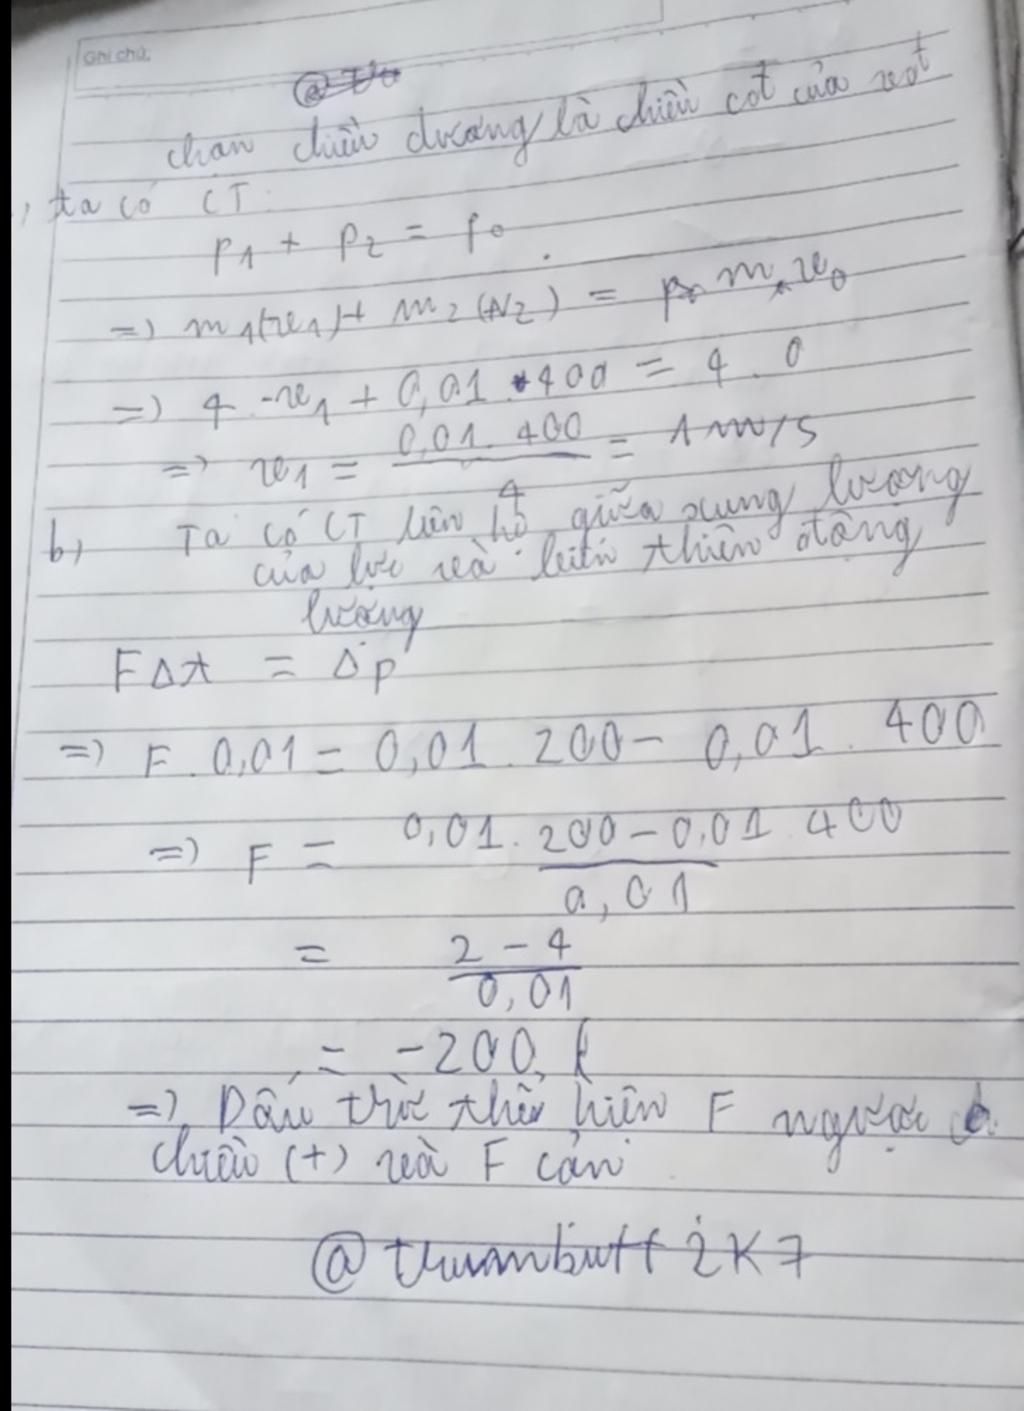 Ghi chú:
chọn chiều dương là chiều cđ của vật
, ta có CT:
P1 + P2 = P0
=> m1(v1)+ m2(v2) = m.v0
=> 4 -v1 + 0,01 . 400 = 4 . 0
=> v1 = 0,01 . 400 / 4 = 1 m/s
b, Ta có CT liên hệ giữa xung lượng
của lực và biến thiên động
lượng
FΔt = Δp
=> F. 0,01 = 0,01 . 200 - 0,01 . 400
=> F = 0,01. 200 - 0,01 400 / 0,01
= 2 - 4 / 0,01
= -200
=> Dấu trừ thể hiện F ngược
chiều (+) và F cản
@thuanbutt 2K7